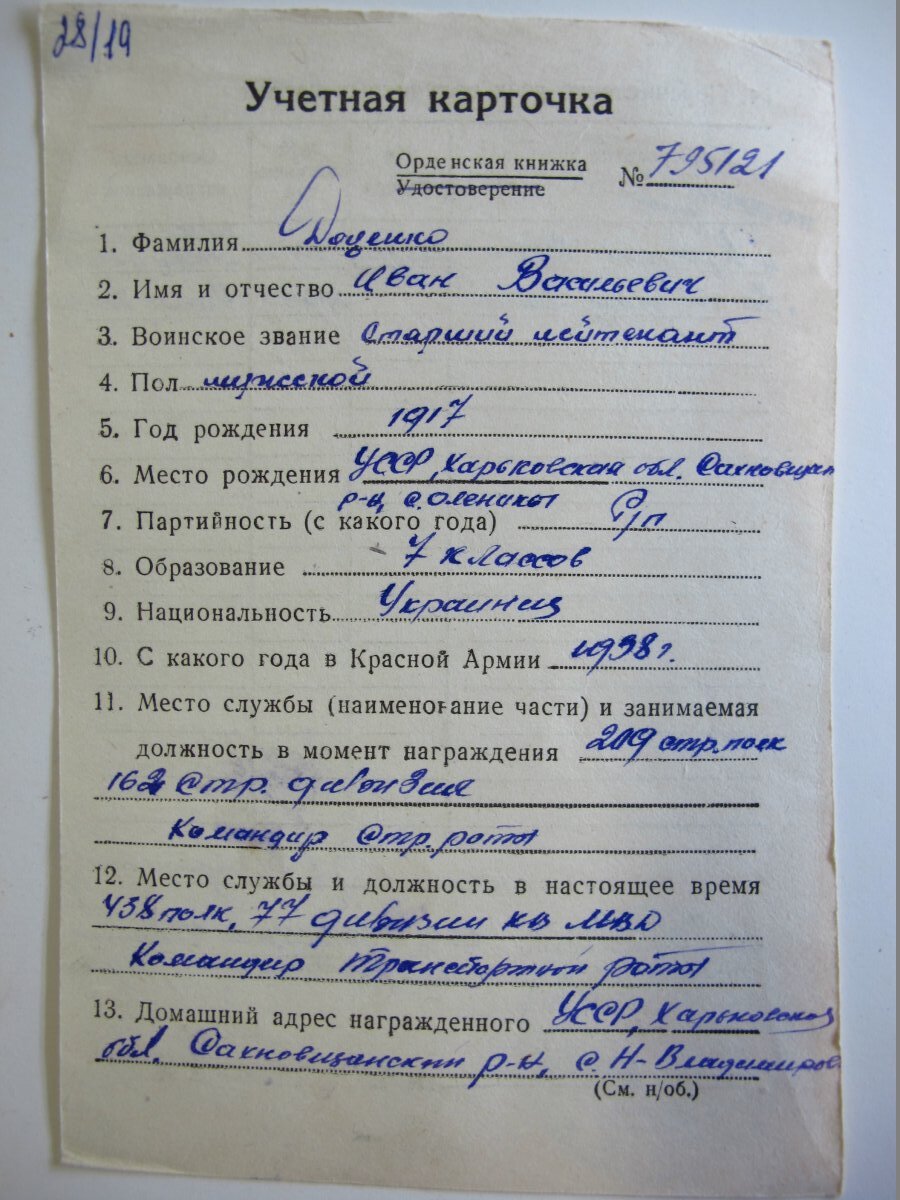 28/19
Учетная карточка
Орденская книжка
Удостоверение
№ 795121
1. Фамилия Доценко
2. Имя и отчество Иван Васильевич
3. Воинское звание Старший лейтенант
4. Пол мужской
5. Год рождения 1917
6. Место рождения УССР, Харьковская обл. Сахновщан
р-н, с.
7. Партийность (с какого года) б/п
8. Образование 7 классов
9. Национальность Украинец
10. С какого года в Красной Армии 1938 г.
11. Место службы (наименование части) и занимаемая
должность в момент награждения 209 стр. полк
162 стр. дивизия
Командир стр. роты
12. Место службы и должность в настоящее время
438 полк, 77 дивизии КВ МВО
Командир транспортной роты
13. Домашний адрес награжденного УССР, Харьковская
обл. Сахновщанский р-н, с. Н-Владимиров
(См. н/об.)